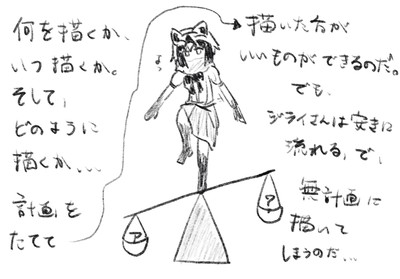 何を描くか、
いつ描くか。
そして、
どのように
描くか...
計画を
たてて
描いた方が
いいものができるのだ。
でも、
ジライさんは安きに
流れる、で、
無計画に
描いて
しまうのだ...
よっ
ア
?